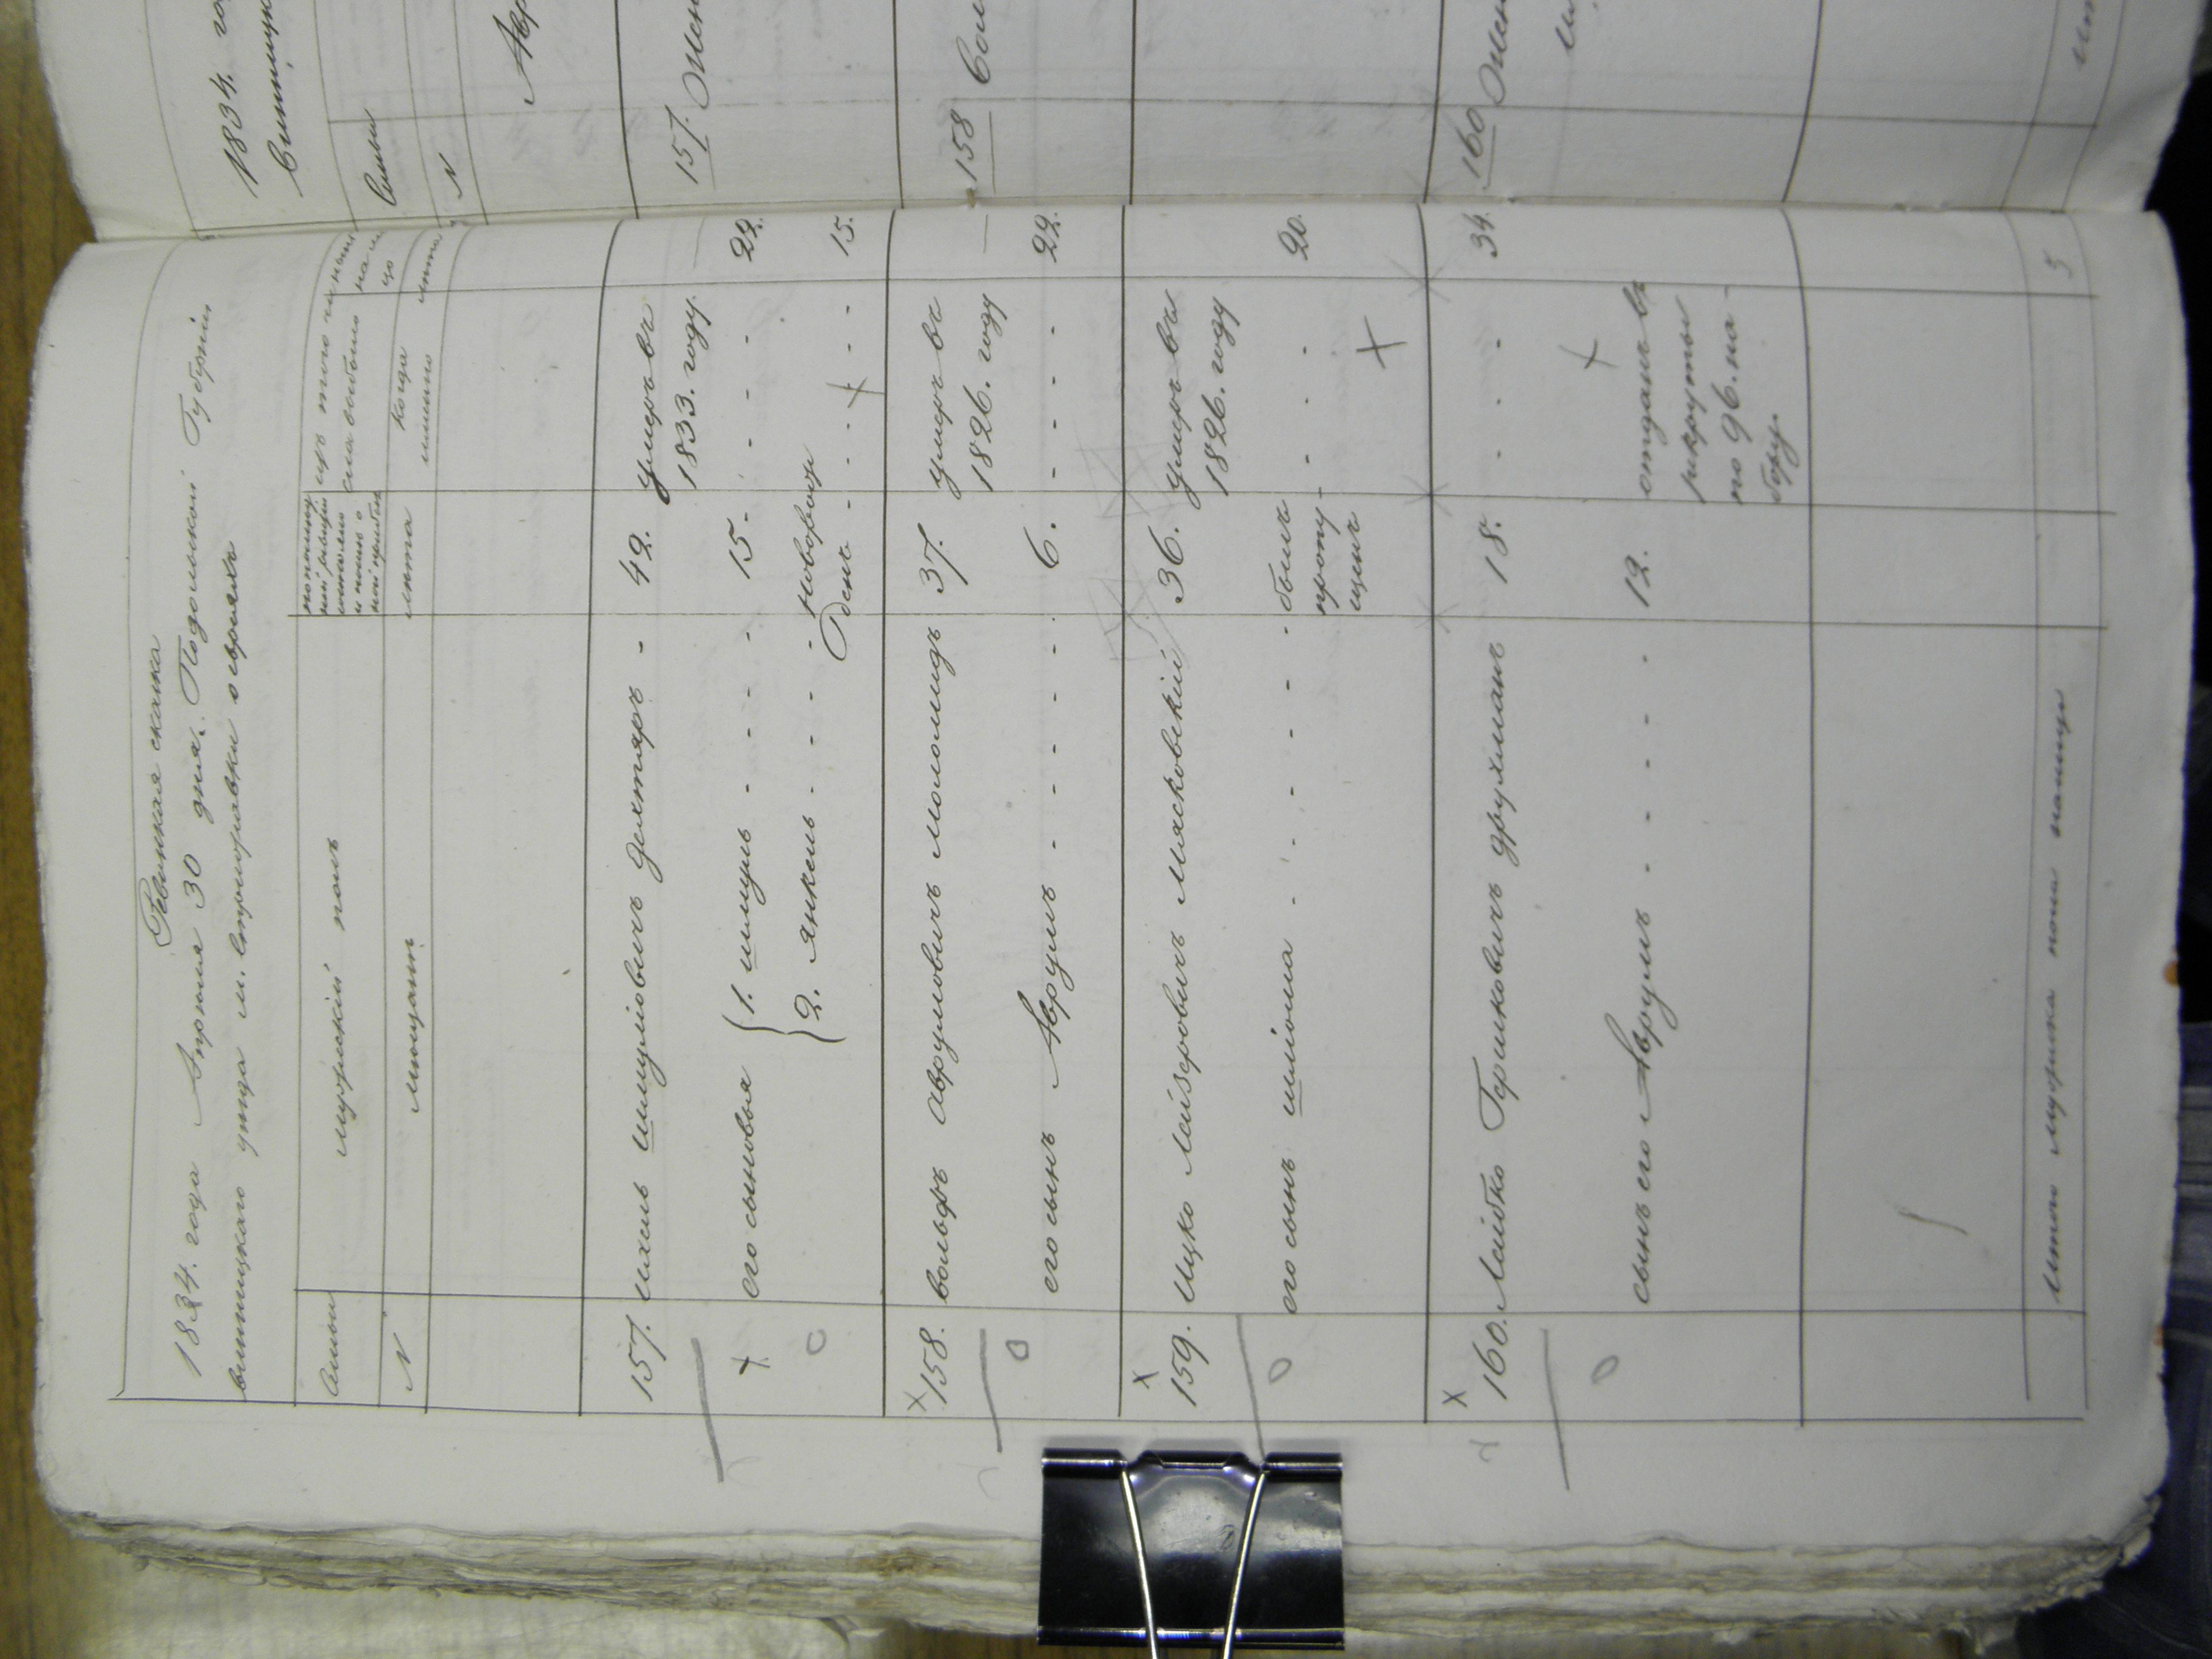 Ревизкая сказка
1834. года Апреля 30 дня. Подольской Губерніи
винницкаго уезда м. Стрижавки о евреяхъ
Семьи
мужескій полъ
по последней ревизіи состояло и после оной прибыло
изъ того числа выбыло
ныне на лицо
N
мещанъ
лета
Когда именно
лета
157. Михель шмуліовичъ дехтяръ - 42. умеръ въ 1833. году. —
его сыновья { 1. шмуль - - - - 15. - - - - 22.
{ 2. янкель - - - - новорожденъ - - - - 15.
158. вольфъ Аврумовичъ Моломидъ 37. умеръ въ 1826. году —
его сынъ Аврумъ - - - - 6. - - - - 22.
159. Ицко Лейзеровичъ Мясковскій 36. умеръ въ 1826. году
его сынъ шліома - - - - - былъ пропущенъ - - - 20.
160. Лейбко Гершковичъ друхманъ 18. - - - 34.
сынъ его Аврумъ - - - - - 12. отданъ въ рекруты по 96. набору.
Итого мужеска пола налицо 5
1834. го
Винницк
Семьи
N
157. Ижен
158
160